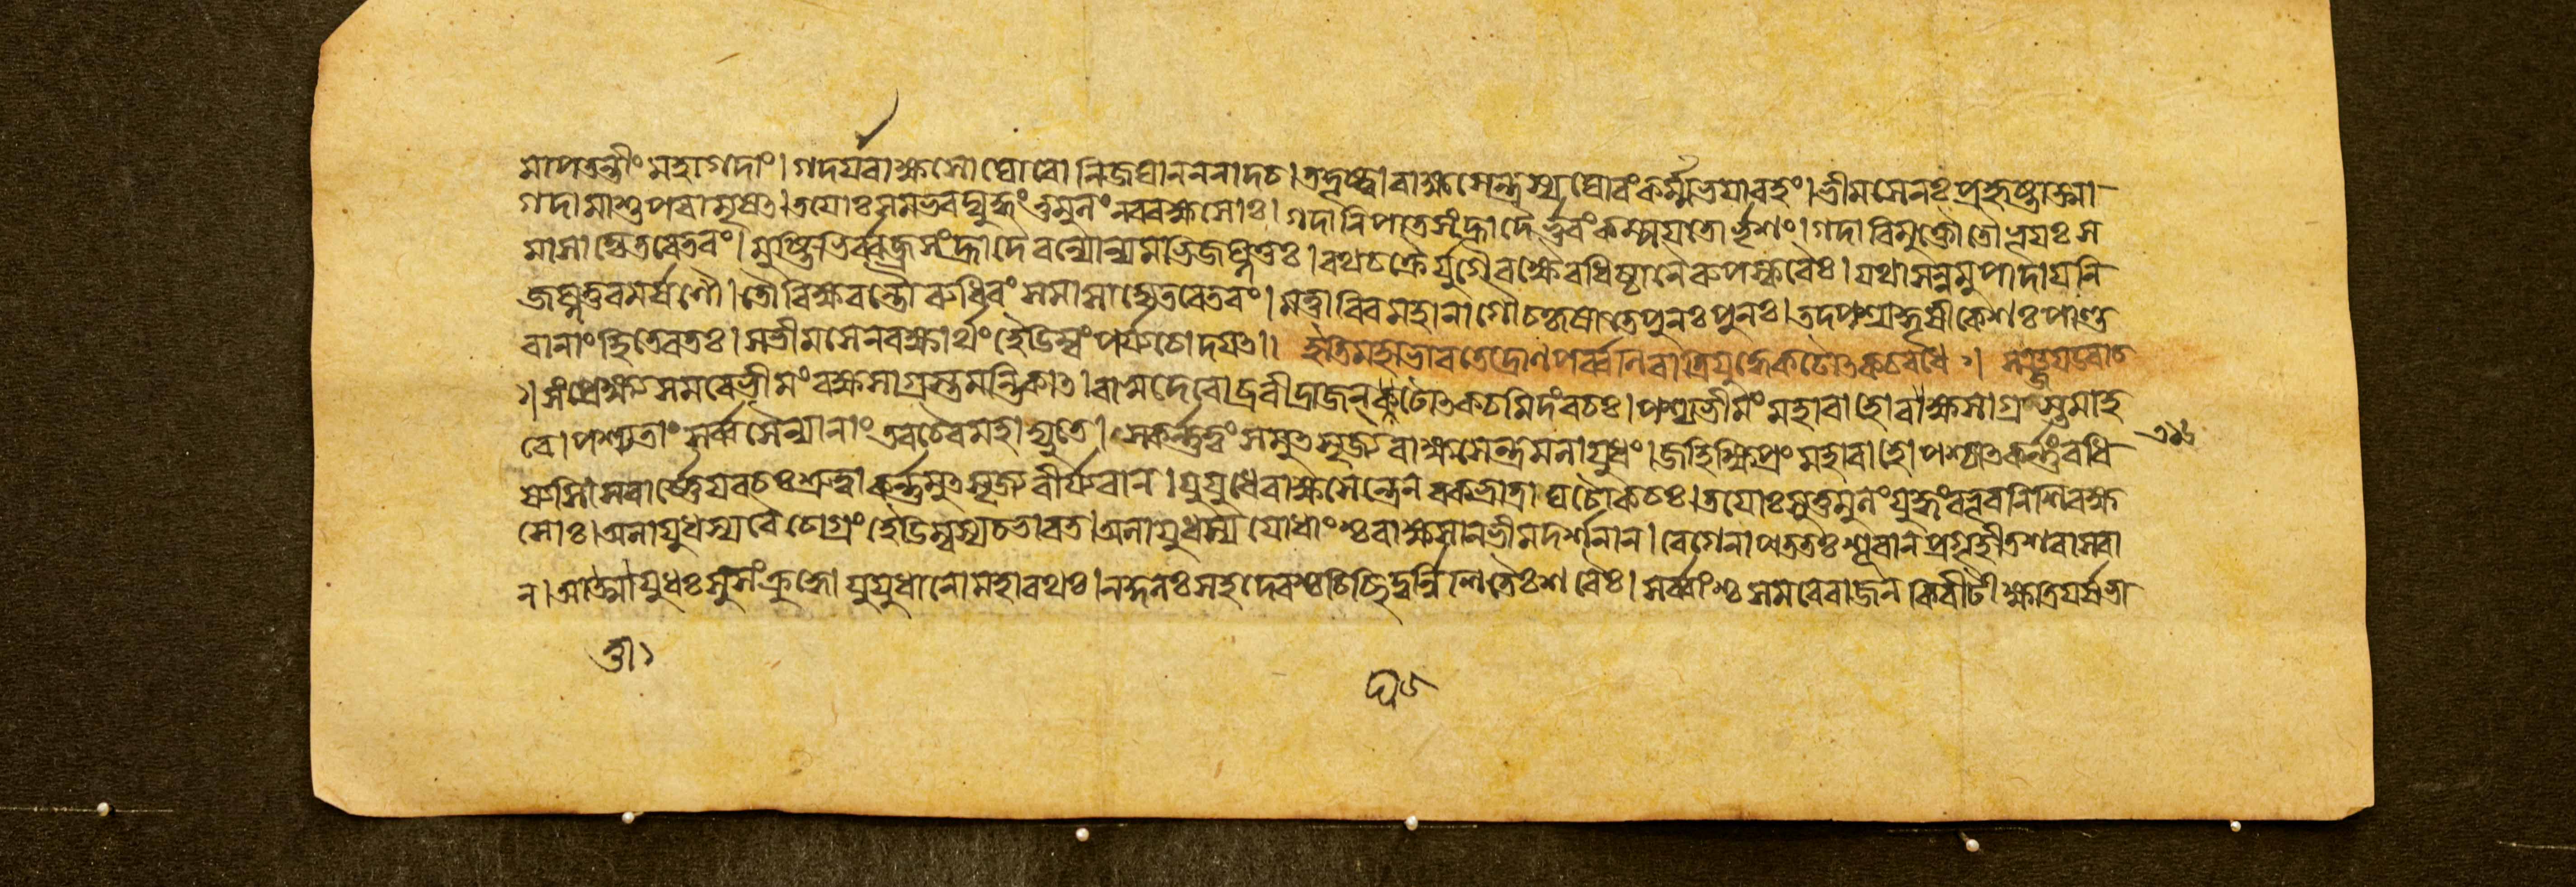 মাপতন্তীং মহাগদাং। গদয়া রাক্ষসো ঘোরো নিজঘান ননাদ চ। তদ্দৃষ্ট্বা রাক্ষসেন্দ্রস্য ঘোরং কর্ম্ম ভয়াবহং। ভীমসেনঃ প্রহৃষ্টাত্মা
গদামাশু পরামৃষত। তয়োঃ সমভবদ্যুদ্ধং তুমুলং নররক্ষসোঃ। গদানিপাতসংহ্রাদৈর্ভুবং কম্পয়তোর্ভৃশং। গদাবিমুক্তৌ তৌ ভূয়ঃ স
মাসাদ্যেতরেতরং। মুষ্টিভির্ব্বজ্রসংহ্রাদৈরন্যোন্যমভিজঘ্নতুঃ। রথচক্রৈর্যুগৈরক্ষৈরধিষ্ঠানৈরুপস্করৈঃ। যথাসন্নমুপাদায় নি
জঘ্নতুরমর্ষণৌ। তৌ বিক্ষরন্তৌ রুধিরং সমাসাদ্যেতরেতরং। মত্তাবিব মহানাগৌ চকৃষাতে পুনঃ পুনঃ। তদপশ্যদ্ধৃষীকেশঃ পাণ্ড
বানাং হিতে রতঃ। স ভীমসেনরক্ষার্থং হৈডিম্বং পর্যচোদয়ত॥ ইতি মহাভারতে দ্রোণপর্ব্বনি রাত্রিযুদ্ধে ঘটোৎকচবধে॥ সঞ্জয় উবাচ
॥ সংপ্রেক্ষ্য সমরে ভীমং রক্ষসা গ্রস্তমন্তিকাৎ। বাসুদেবোঽব্রবীদ্রাজন্ ঘটোৎকচমিদং বচঃ। পশ্য ভীমং মহাবাহো রাক্ষসা গ্রস্তমাহ
বে। পশ্যতাং সর্ব্বসৈন্যানাং তব চৈব মহাদ্যুতে। স কর্ন্নং ত্বং সমুৎসৃজ্য রাক্ষসেন্দ্রমলায়ুধং। জহি ক্ষিপ্রং মহাবাহো পশ্চাৎ কর্ন্নং বধি
ষ্যসি। স বার্ষ্ণেয়বচঃ শ্রুত্বা কর্ন্নমুৎসৃজ্য বীর্যবান। যুযুধে রাক্ষসেন্দ্রেন বকভ্রাত্রা ঘটোৎকচঃ। তয়োঃ সুতুমুলং যুদ্ধং বভূব নিশি রক্ষ
সোঃ। অলায়ুধস্য চৈবোগ্রং হৈডিম্বস্য চ ভারত। অলায়ুধস্য যোধাংশ্চ রাক্ষসান ভীমদর্শনান। বেগেনাপততঃ শূরান প্রগৃহীতশরাসনা
ন। আত্তায়ুধঃ সুসংক্রুদ্ধো যুযুধানো মহারথঃ। নকুলঃ সহদেবশ্চ চিচ্ছিদুর্নিশিতৈঃ শরৈঃ। সর্ব্বাংশ্চ সমরে রাজন কিরীটী ক্ষত্রিয়র্ষভা